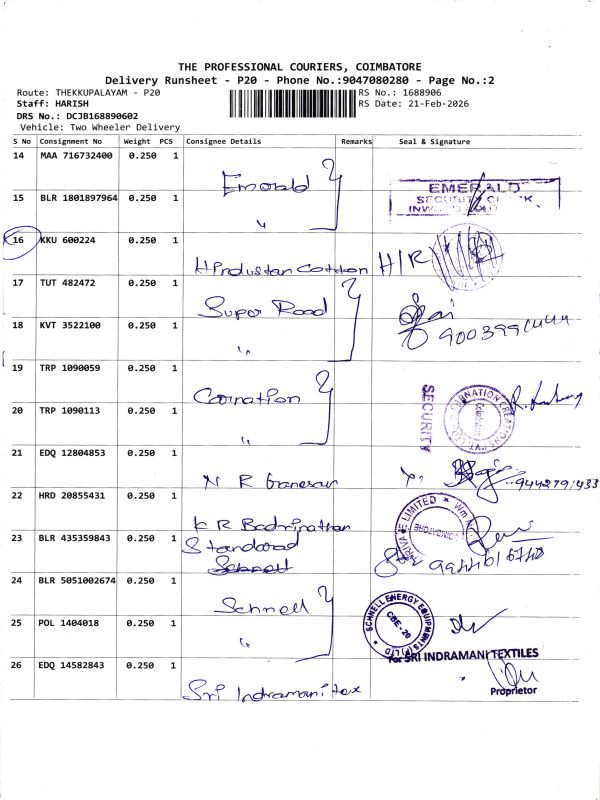 THE PROFESSIONAL COURIERS, COIMBATORE
Delivery Runsheet - P20 - Phone No.:9047080280 - Page No.:2
Route: THEKKUPALAYAM - P20
RS No.: 1688906
Staff: HARISH
RS Date: 21-Feb-2026
DRS No.: DCJB168890602
Vehicle: Two Wheeler Delivery
S No Consignment No Weight PCS Consignee Details Remarks Seal & Signature
14 MAA 716732400 0.250 1
Emerald
EMERALD
SECURITY CHECK
15 BLR 1801897964 0.250 1
"
16 KKU 600224 0.250 1
Hindustan Cotton H/R
17 TUT 482472 0.250 1
Super Road
18 KVT 3522100 0.250 1
"
19 TRP 1090059 0.250 1
Carnation
SECURITY
20 TRP 1090113 0.250 1
"
21 EDQ 12804853 0.250 1
N R Ganesan
9442791433
22 HRD 20855431 0.250 1
K R Badrinathan
23 BLR 435359843 0.250 1
Standard
24 BLR 5051002674 0.250 1
Schnell
25 POL 1404018 0.250 1
"
SCHNELL ENERGY EQUIPMENTS (P) LTD
CBE - 20
For SRI INDRAMANI TEXTILES
26 EDQ 14582843 0.250 1
Sri Indramani tex
Proprietor